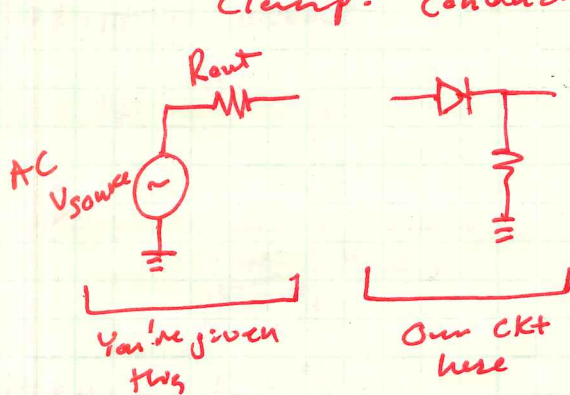 Clamp: Conduc
Rout
AC
Vsource
~
You're given
this
Our CKt
here